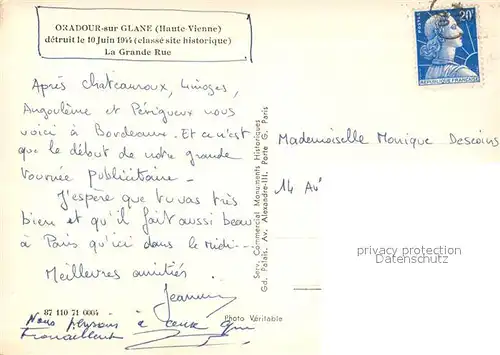 ORADOUR-sur GLANE (Haute Vienne)
détruit le 10 Juin 1944 (classé site historique)
La Grande Rue
Après Chateauroux, Limoges,
Angoulême et Périgueux nous
voici à Bordeaux. Et ce n'est
que le début de notre grande
tournée publicitaire.
J'espère que tu vas très
bien et qu'il fait aussi beau
à Paris qu'ici dans le midi...
Meilleures amitiés.
87 110 71 0004
Photo Véritable
Nous pensons à ceux qui
travaillent
Serv. Commercial Monuments Historiques
Gd. Palais. Av. Alexandre-III, Porte G. Paris
20F
REPUBLIQUE FRANÇAISE
Mademoiselle Monique Descoins
14 Av
privacy protection
Datenschutz